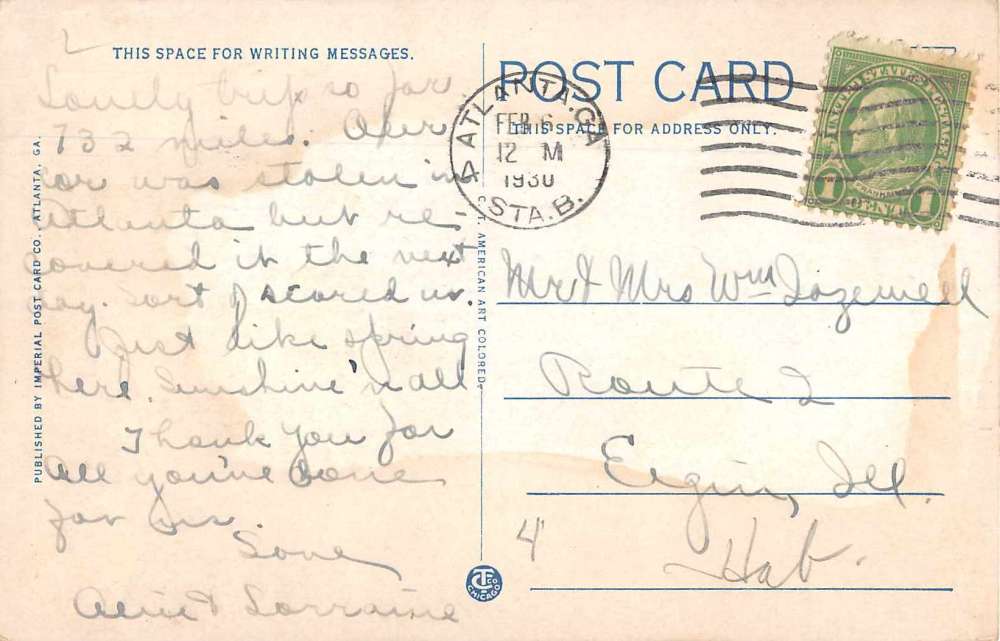 THIS SPACE FOR WRITING MESSAGES.
Lovely trip so far
732 miles. Our
car was stolen in
Atlanta but re-
covered it the next
day. Sort of scared us.
Just like spring
here. Sunshine 'n all
Thank you for
all you've done
for us.
Love
Lorraine
PUBLISHED BY IMPERIAL POST CARD CO., ATLANTA, GA.
C. T. AMERICAN ART COLORED.
POST CARD
THIS SPACE FOR ADDRESS ONLY.
ATLANTA. GA
FEB 6
12 M
1930
STA. B.
4
UNITED STATES POSTAGE
FRANKLIN
1 CENT 1
Mr & Mrs Wm
Route 2
Elgin, Ill.
4
CT CO
CHICAGO